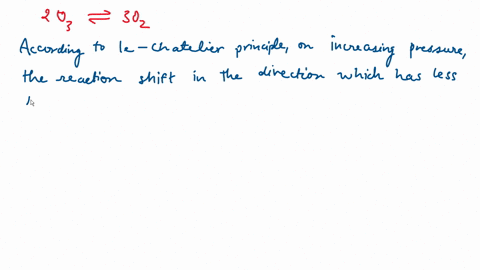 2O₃ ⇌ 3O₂
According to le-chatelier principle, on increasing pressure,
the reaction shift in the direction which has less